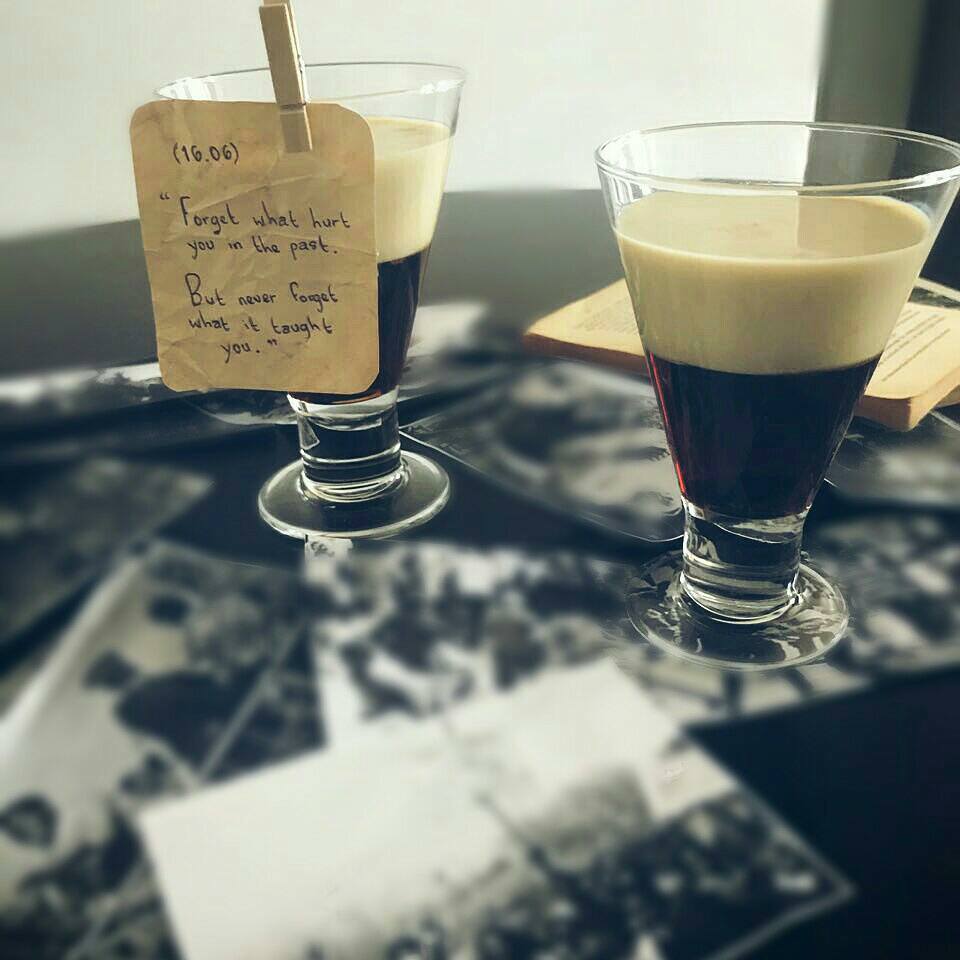 (16.06)
“ Forget what hurt
you in the past.
But never forget
what it taught
you. ”